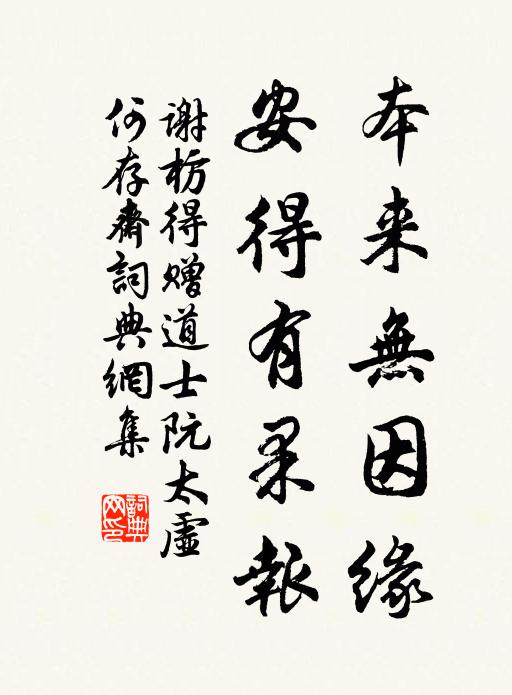 本来無因緣
安得有果報
謝枋得贈道士阮太虛
何存齋詞典網集
詞典
网印